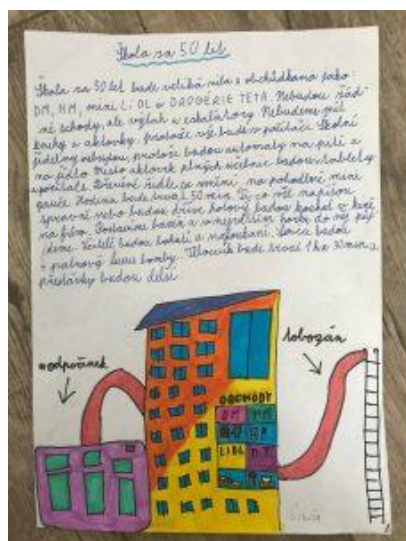 Škola za 50 let
Škola za 50 let bude veliká vila s obchůdkama jako:
DM, HM, mini LiDL a DROGERIE TETA. Nebudou žád-
né schody, ale výtah a eskalátory. Nebudeme mít
knihy a aktovky, protože vše bude v počítači. Školní
jídelny nebudou, protože budou automaty na pití a
na jídlo. Místo aktovek plných učebnic budou tablety
a počítače. Dřevěné židle se změní na pohodlné mini
gauče. Hodina bude trvat 50 min. Ti co vše napíšou
správně nebo budou dříve hotový budou koukat v kině
na film. Postavíme bazén a v nejvetším horku do něj půj-
deme. Učitelé budou bohatí a nafoukaní. Lavice budou
Tělocvik bude trvat 1 h a 30 min a
přestávky budou delší.
odpočinek
tobogán
OBCHODY
DM HM
LIDL D.T.